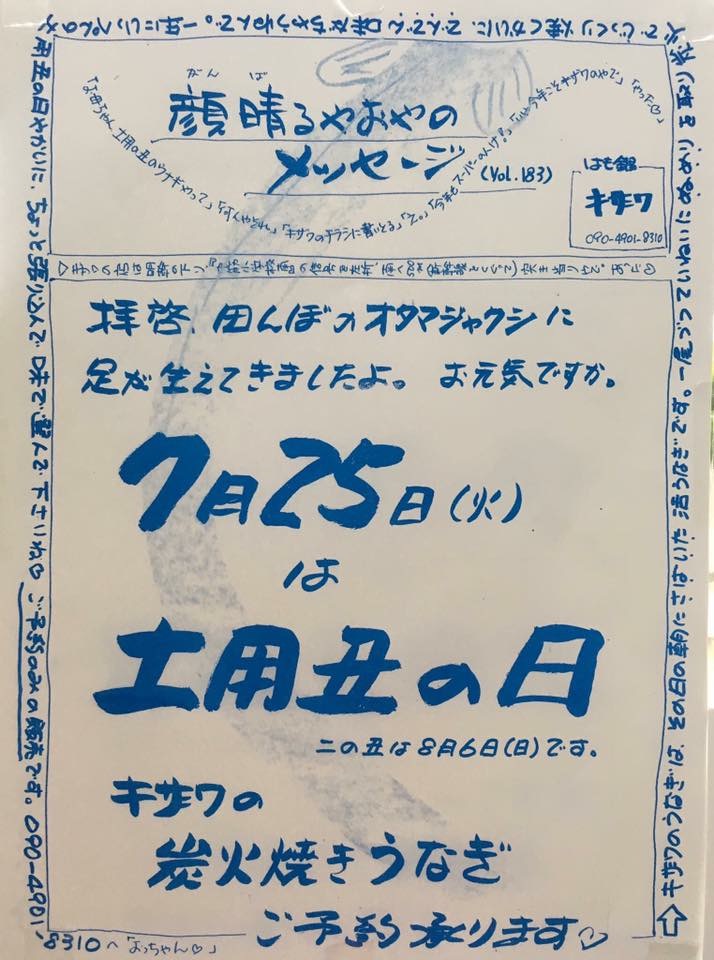 がんば
顔晴るやおやの
メッセージ
(Vol.183)
はも銀
キザワ
090-4901-8310
「お母ちゃん、土用の丑のウナギやって」「なんやどれ」「キザワのチラシに書いとる」「え。」「今年もスーパーのんけ?」「いや今年こそキザワのやで」「やった〜♡」
拝啓、田んぼのオタマジャクシに
足が生えてきましたよ。お元気ですか。
7月25日(火)
は
土用丑の日
二の丑は8月6日(日)です。
キザワの
炭火焼きうなぎ
ご予約承ります♡
⇧キザワのうなぎは、その日の朝にさばいた活うなぎです。一尾づつていねいにぬめりを取り炭
火でじっくり焼くかいに、でんでん味がちゃうねんで。一年にいっぺんの
土用丑の日やかいに、ちょっと張り込んで味で選んで下さいね♡ご予約のみの販売です。090-4901
-8310へ「よっちゃん♡」